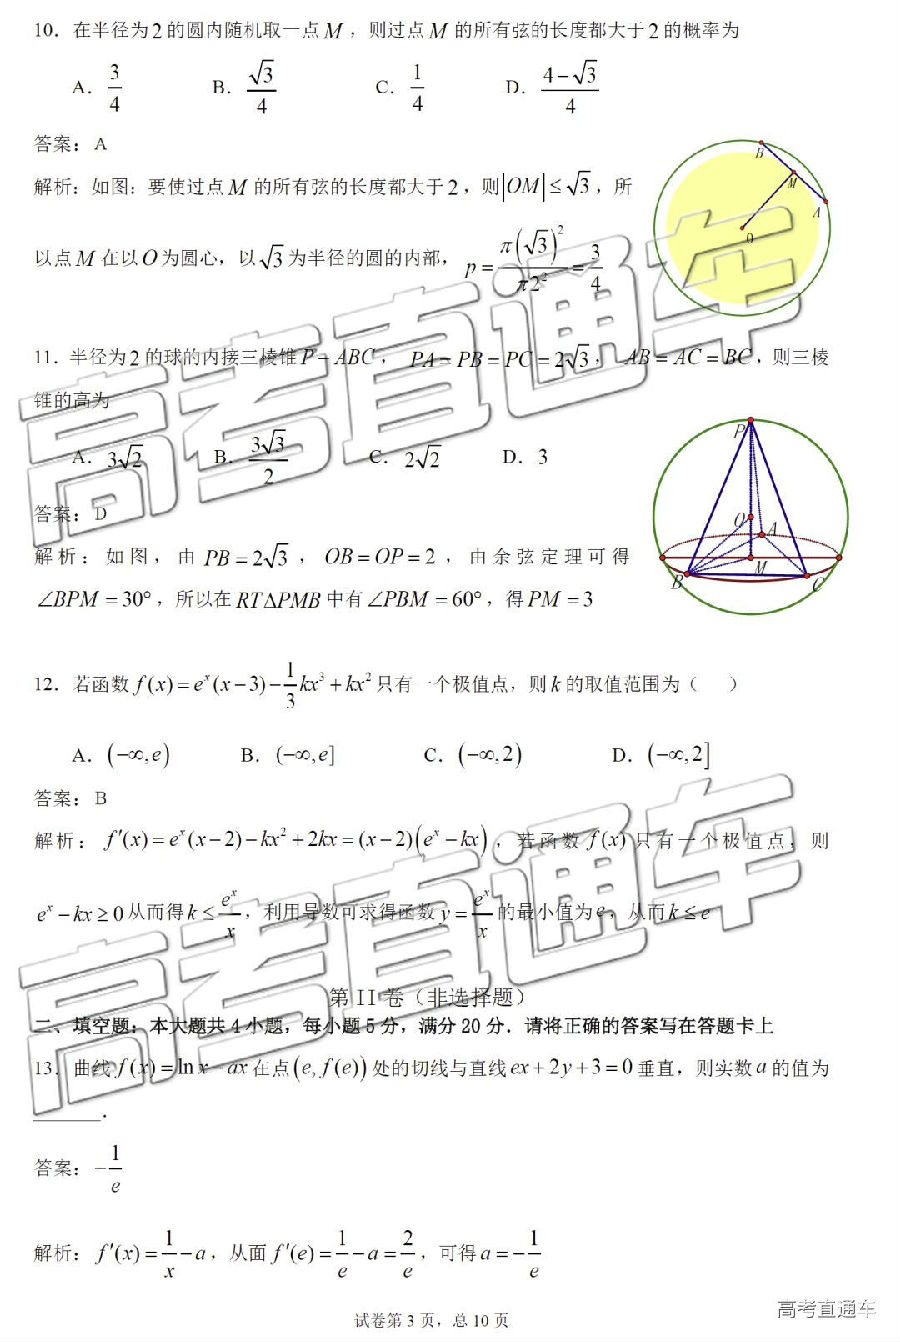 10．在半径为2的圆内随机取一点M，则过点M的所有弦的长度都大于2的概率为
A．3/4 B．√3/4 C．1/4 D．(4−√3)/4
答案：A
解析：如图：要使过点M的所有弦的长度都大于2，则|OM|≤√3，所
以点M在以O为圆心，以√3为半径的圆的内部，p=π(√3)²/π2²=3/4
B
M
A
O
11．半径为2的球的内接三棱锥P−ABC，PA=PB=PC=2√3，AB=AC=BC，则三棱
锥的高为
A．3√2 B．3√3/2 C．2√2 D．3
答案：D
解析：如图，由PB=2√3，OB=OP=2，由余弦定理可得
∠BPM=30°，所以在RTΔPMB中有∠PBM=60°，得PM=3
P
O
A
M
B
C
12．若函数f(x)=eˣ(x−3)−1/3kx³+kx²只有一个极值点，则k的取值范围为（ ）
A．(−∞,e) B．(−∞,e] C．(−∞,2) D．(−∞,2]
答案：B
解析：f′(x)=eˣ(x−2)−kx²+2kx=(x−2)(eˣ−kx)，若函数f(x)只有一个极值点，则
eˣ−kx≥0从而得k≤eˣ/x，利用导数可求得函数y=eˣ/x的最小值为e，从而k≤e
第II卷（非选择题）
二、填空题：本大题共4小题，每小题5分，满分20分．请将正确的答案写在答题卡上
13．曲线f(x)=ln x−ax在点(e,f(e))处的切线与直线ex+2y+3=0垂直，则实数a的值为
________．
答案：−1/e
解析：f′(x)=1/x−a，从面f′(e)=1/e−a=2/e，可得a=−1/e
试卷第3页，总10页
高考直通车
高考直通车
高考直通车